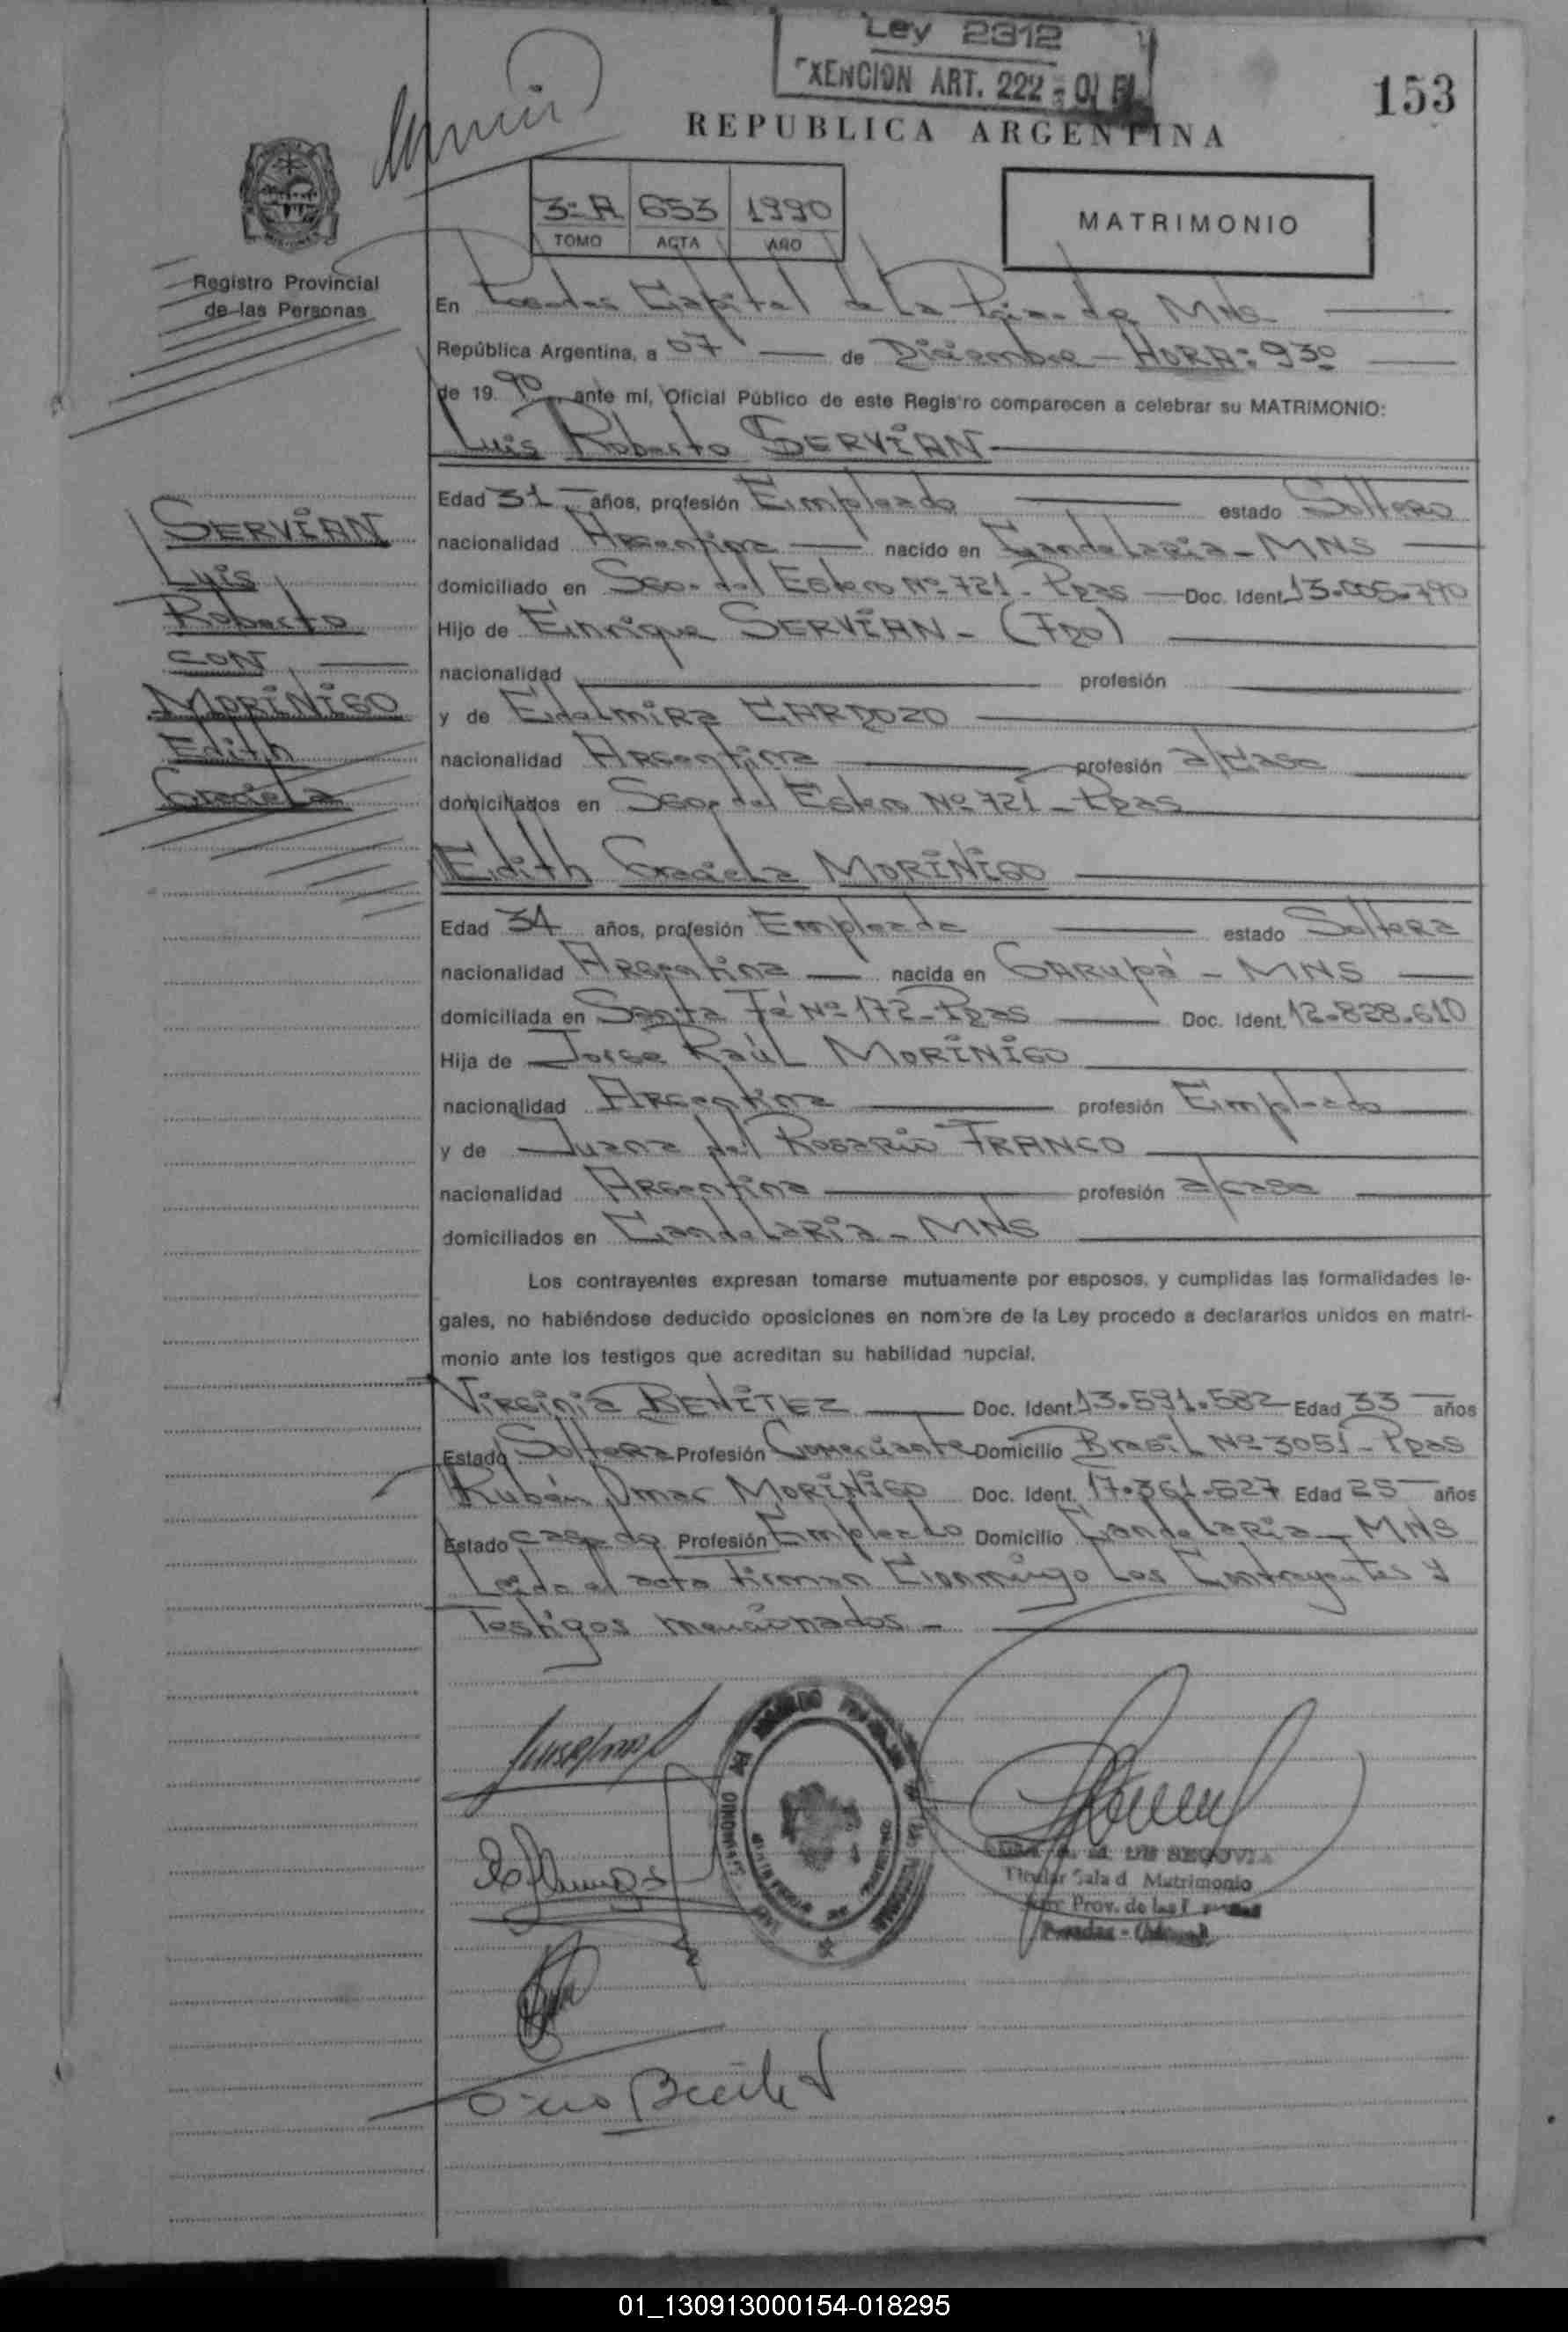 Ley 2312
EXENCION ART. 222
153
REPUBLICA ARGENTINA
3=A 653 1990
TOMO ACTA AÑO
MATRIMONIO
Registro Provincial
de las Personas
En Posadas Capital de La Pcia. de MNS
República Argentina, a 07 de Diciembre - HORA: 9 30
de 19 90 ante mí, Oficial Público de este Registro comparecen a celebrar su MATRIMONIO:
Luis Roberto SERVIAN
SERVIAN
Luis
Roberto
CON
MORINIGO
Edith
Graciela
Edad 31 años, profesión Empleado estado Soltero
nacionalidad Argentina nacido en Candelaria - MNS
domiciliado en Sgo. del Estero Nº 721 - Ppas Doc. Ident. 13.005.790
Hijo de Enrique SERVIAN - (Fdo)
nacionalidad profesión
y de Edelmira CARDOZO
nacionalidad Argentina profesión a/casa
domiciliados en Sgo. del Estero Nº 721 - Ppas
Edith Graciela MORINIGO
Edad 34 años, profesión Empleada estado Soltera
nacionalidad Argentina nacida en GARUPá - MNS
domiciliada en Santa Fé Nº 172 - Ppas Doc. Ident. 12.828.610
Hija de Jorge Raúl MORINIGO
nacionalidad Argentina profesión Empleado
y de Juana del Rosario FRANCO
nacionalidad Argentina profesión a/casa
domiciliados en Candelaria - MNS
Los contrayentes expresan tomarse mutuamente por esposos, y cumplidas las formalidades le-
gales, no habiéndose deducido oposiciones en nombre de la Ley procedo a declararlos unidos en matri-
monio ante los testigos que acreditan su habilidad nupcial.
Virginia BENITEZ Doc. Ident. 13.591.582 Edad 33 años
Estado Soltera Profesión Comerciante Domicilio Brasil Nº 3051 - Ppas
Rubén Omar MORINIGO Doc. Ident. 17.361.527 Edad 25 años
Estado casado Profesión Empleado Domicilio Candelaria - MNS
Leida el acta firman Conmigo Los Contrayentes y
Testigos mencionados -
DE SEGOVIA
Titular Sala d Matrimonio
Prov. de las
Posadas -
01_130913000154-018295